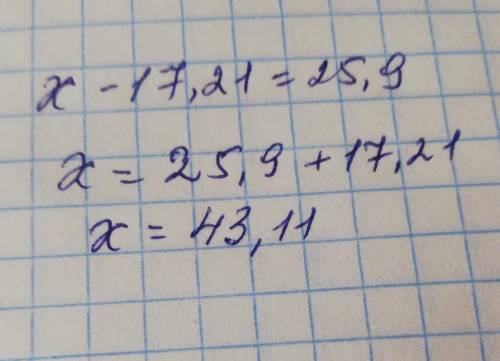 x - 17,21 = 25,9
x = 25,9 + 17,21
x = 43,11